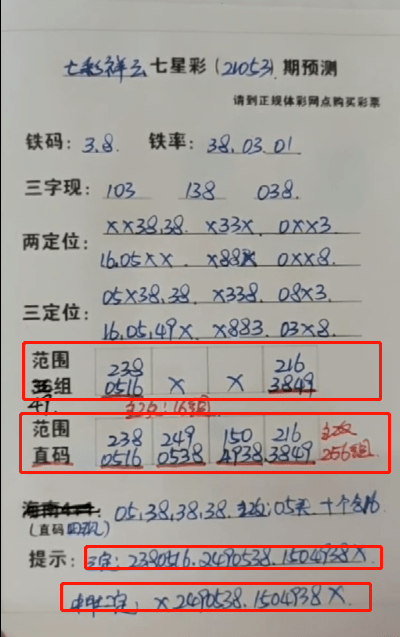 七彩祥云七星彩(21053)期预测
请到正规体彩网点购买彩票
铁码: 3.8. 铁率: 38.03.01
三字现: 103 138 038.
两定位: XX38.38. X33X. 0XX3.
16.05XX. X88X 0XX8.
三定位: 05X38.38. X338. 08X3.
16.05.49X. X883. 03X8.
范围 238 216
组 0516 X X 3849
49. 主攻:16组
范围 238 249 150 216 主攻
直码 0516 0538 4938 3849 256组
05.38.38.38. 主攻:05头
(直码四码)
提示: 三定: 2380516.2490538.1504938X
二定: X2490538.1504938X